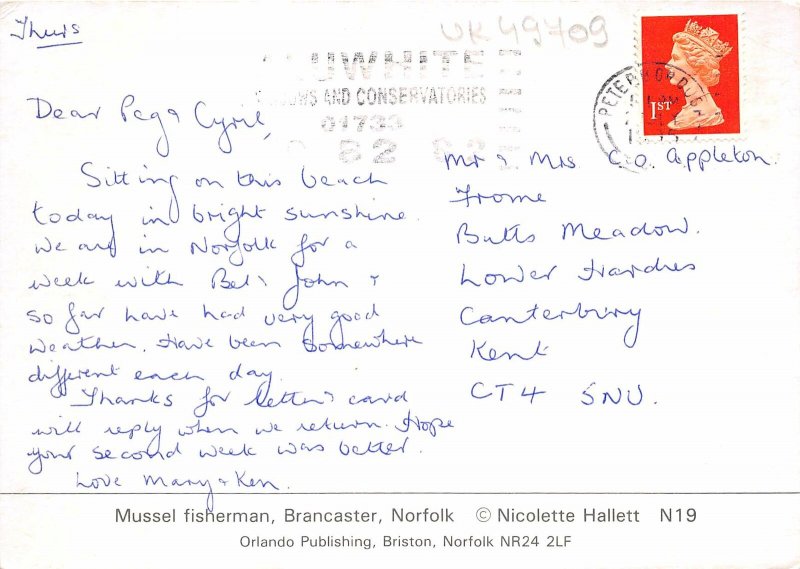 Thurs
UK49709
WHITE
WS AND CONSERVATORIES
01733
PETERBOROUGH
1ST
Dear Peg & Cyril,
Sitting on this beach
today in bright sunshine.
We are in Norfolk for a
week with Bet & John &
so far have had very good
weather. Have been somewhere
different each day.
Thanks for letter & card
will reply when we return. Hope
your second week was better.
Love Mary & Ken.
Mr & Mrs. C.O. Appleton.
Frome
Butts Meadow.
Lower Hardres
Canterbury
Kent
CT4 5NU.
Mussel fisherman, Brancaster, Norfolk © Nicolette Hallett N19
Orlando Publishing, Briston, Norfolk NR24 2LF